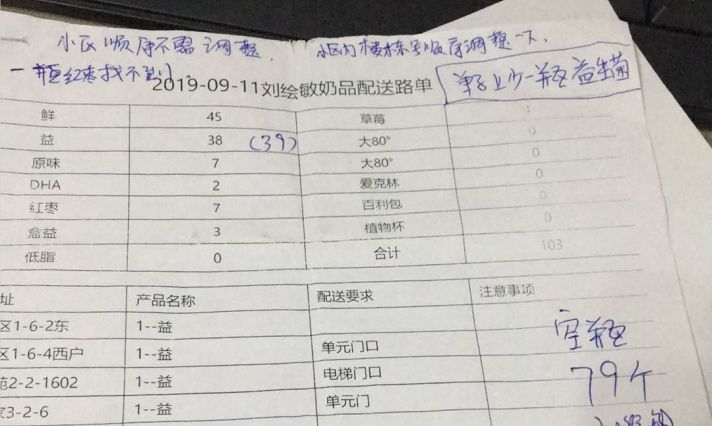 小区顺序不需调整， 小区内楼栋号顺序调整一下，
一瓶红枣找不到
2019-09-11刘绘敏奶品配送路单
单子上少一瓶益生菌
鲜 45 草莓 1
益 38 (39) 大80° 0
原味 7 大80° 0
DHA 2 爱克林 0
红枣 7 百利包 0
盒益 3 植物杯 0
低脂 0 合计 103
址 产品名称 配送要求 注意事项
区1-6-2东 1--益
区1-6-4西户 1--益 单元门口 空瓶
苑2-2-1602 1--益 电梯门口 79个
3-2-6 1--益 单元门